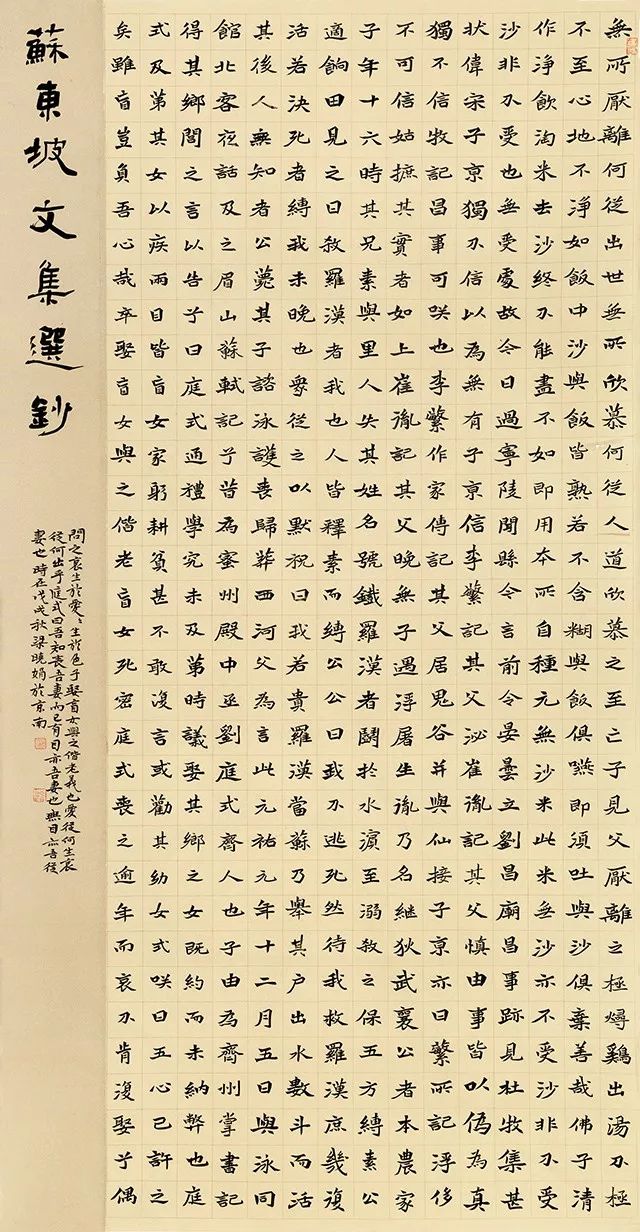 無所厭離何從出世無所欣慕何從人道欣慕之至亡子見父厭離之極燖鷄出湯不極
不至心地不淨如飯中沙與飯皆熟若不含糊與飯俱嚥即須吐與沙俱棄善哉佛子清
作淨飲淘米去沙終不能盡不如即用本所自種元無沙米此米無沙亦不受沙非不受
沙非不受也無受處故今日過寧陵聞縣令言前令晏曇立劉昌廟昌事跡見杜牧集甚
狀偉宋子京獨不信以為無有子京信李蘩記其父泌崔胤記其父慎由事皆以偽為真
獨不信牧記昌事可咲也李蘩作家傳記其父居鬼谷并與仙接子京亦曰蘩所記浮侈
不可信姑摭其實者如上崔胤記其父晚無子遇浮屠生胤乃名繼狄武襄公者本農家
子年十六時其兄素與里人失其姓名號鐵羅漢者鬪於水濵至溺殺之保五方縛素公
適餉田見之曰殺羅漢者我也人皆釋素而縛公公曰我不逃死然待我救羅漢庶幾復
活若決死者縛我未晚也衆從之以默祝曰我若貴羅漢當蘇乃舉其尸出水數斗而活
其後人無知者公薨其子諮泳護喪歸葬西河父為言此元祐元年十二月五日與泳同
館北客夜話及之眉山蘇軾記予昔為密州殿中丞劉庭式齊人也子由為齊州掌書記
得其鄉閭之言以告予曰庭式通禮學究未及第時議娶其鄉之女既約而未納弊也庭
式及第其女以疾兩目皆盲女家躬耕貧甚不敢復言或勸其幼女式咲曰吾心已許之
矣雖盲豈負吾心哉卒娶盲女與之偕老盲女死密庭式喪之逾年而哀不肯復娶予偶
蘇東坡文集選鈔
問之哀生於愛〻生於色子娶盲女與之偕老義也愛從何生哀
從何出乎庭式曰吾知喪吾妻而已有目亦吾妻也無目亦吾後
妻也時在戊戌秋梁曉娟於京南